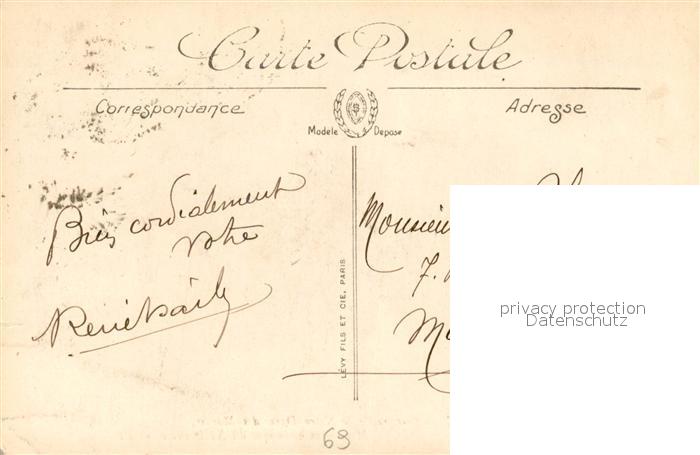 Carte Postale
Correspondance
Adresse
Modèle Déposé
Bien cordialement
votre
René
LÉVY FILS ET CIE, PARIS
Monsieur
7.
privacy protection
Datenschutz
69